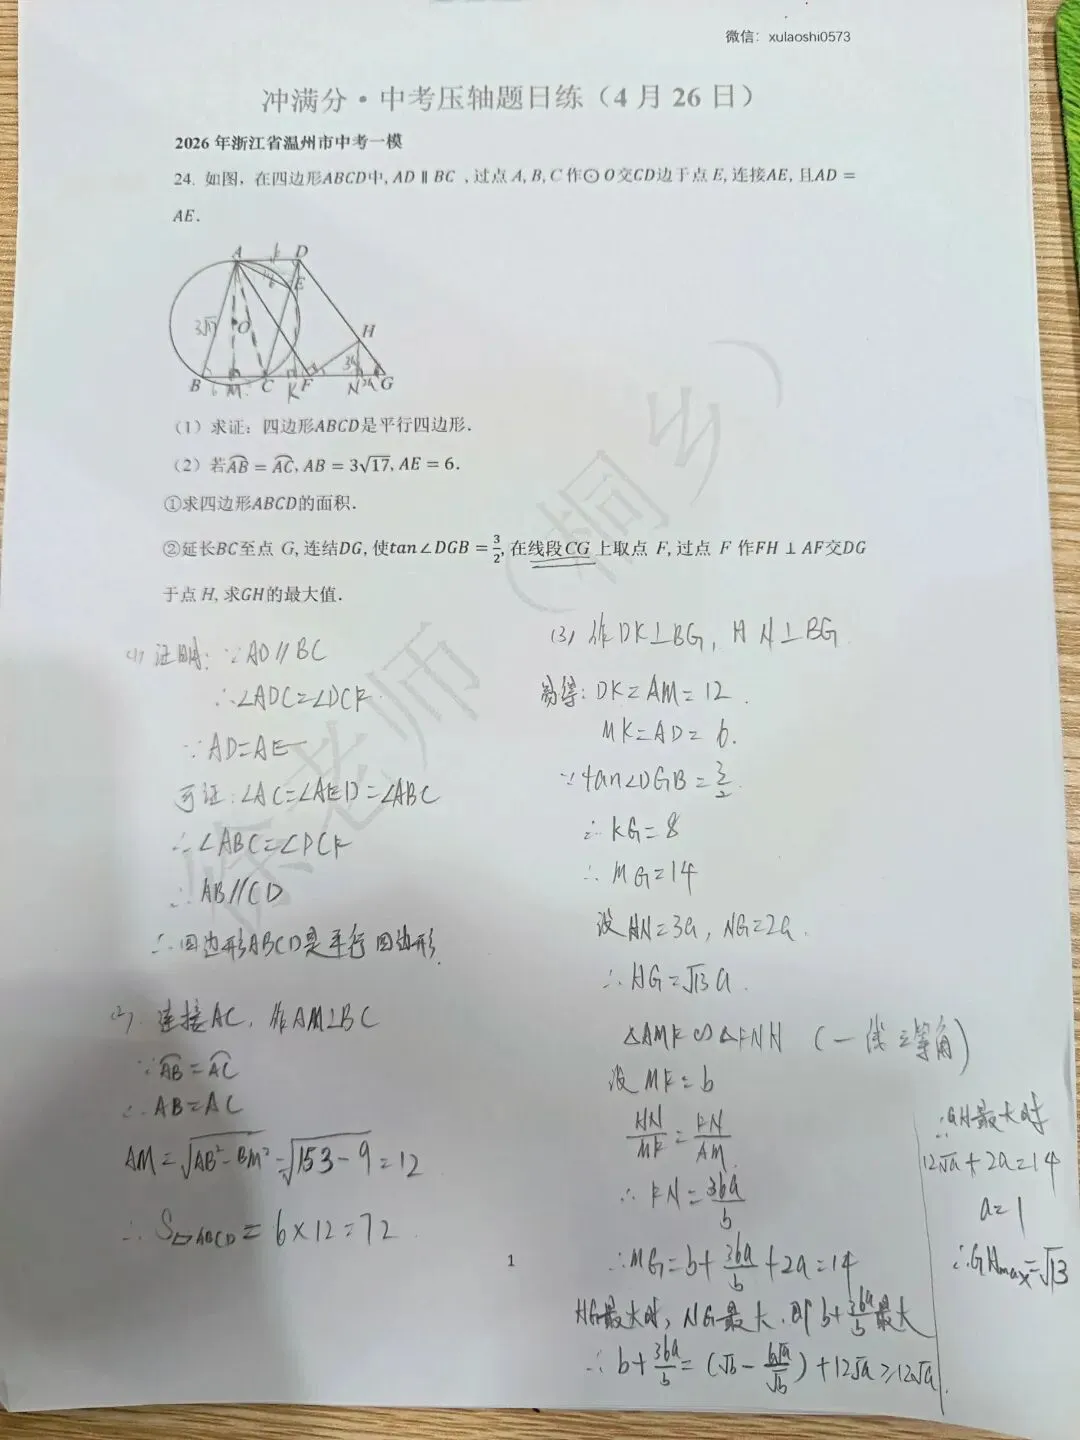 微信：xulaoshi0573
冲满分·中考压轴题日练（4月26日）
2026年浙江省温州市中考一模
24. 如图，在四边形ABCD中, AD ∥ BC ，过点 A, B, C 作⊙O交CD边于点 E, 连接AE, 且AD =
AE.
A 6 D
6 E
3√17 O
H
3a
B 6 M C K F N 2a G
（1）求证：四边形ABCD是平行四边形.
（2）若A͡B = A͡C, AB = 3√17, AE = 6.
①求四边形ABCD的面积.
②延长BC至点 G, 连结DG, 使tan∠DGB = 3/2, 在线段CG 上取点 F, 过点 F 作FH ⊥ AF交DG
于点 H, 求GH的最大值.
(1) 证明: ∵AD∥BC
∴∠ADC=∠DCF
∵AD=AE
可证:∠AC=∠AED=∠ABC
∴∠ABC=∠DCF
∴AB∥CD
∴四边形ABCD是平行四边形
(2). 连接AC, 作AM⊥BC
∵A͡B=A͡C
∴AB=AC
AM=√AB²-BM²=√153-9=12
∴S▱ABCD=6×12=72
(3) 作DK⊥BG, HN⊥BG
易得: DK=AM=12.
MK=AD=6.
∵tan∠DGB=3/2
∴KG=8
∴MG=14
设HN=3a, NG=2a.
∴HG=√13a.
△AMF∽△FNH (一线三等角)
设MF=b
HN/MF=FN/AM
∴FN=36a/b
∴MG=b+36a/b+2a=14
HG最大时, NG最大. 即b+36a/b最大
∴b+36a/b=(√b-6√a/√b)+12√a≥12√a.
∴GH最大时
12√a+2a=14
a=1
∴GHmax=√13
徐老师（桐乡）
1